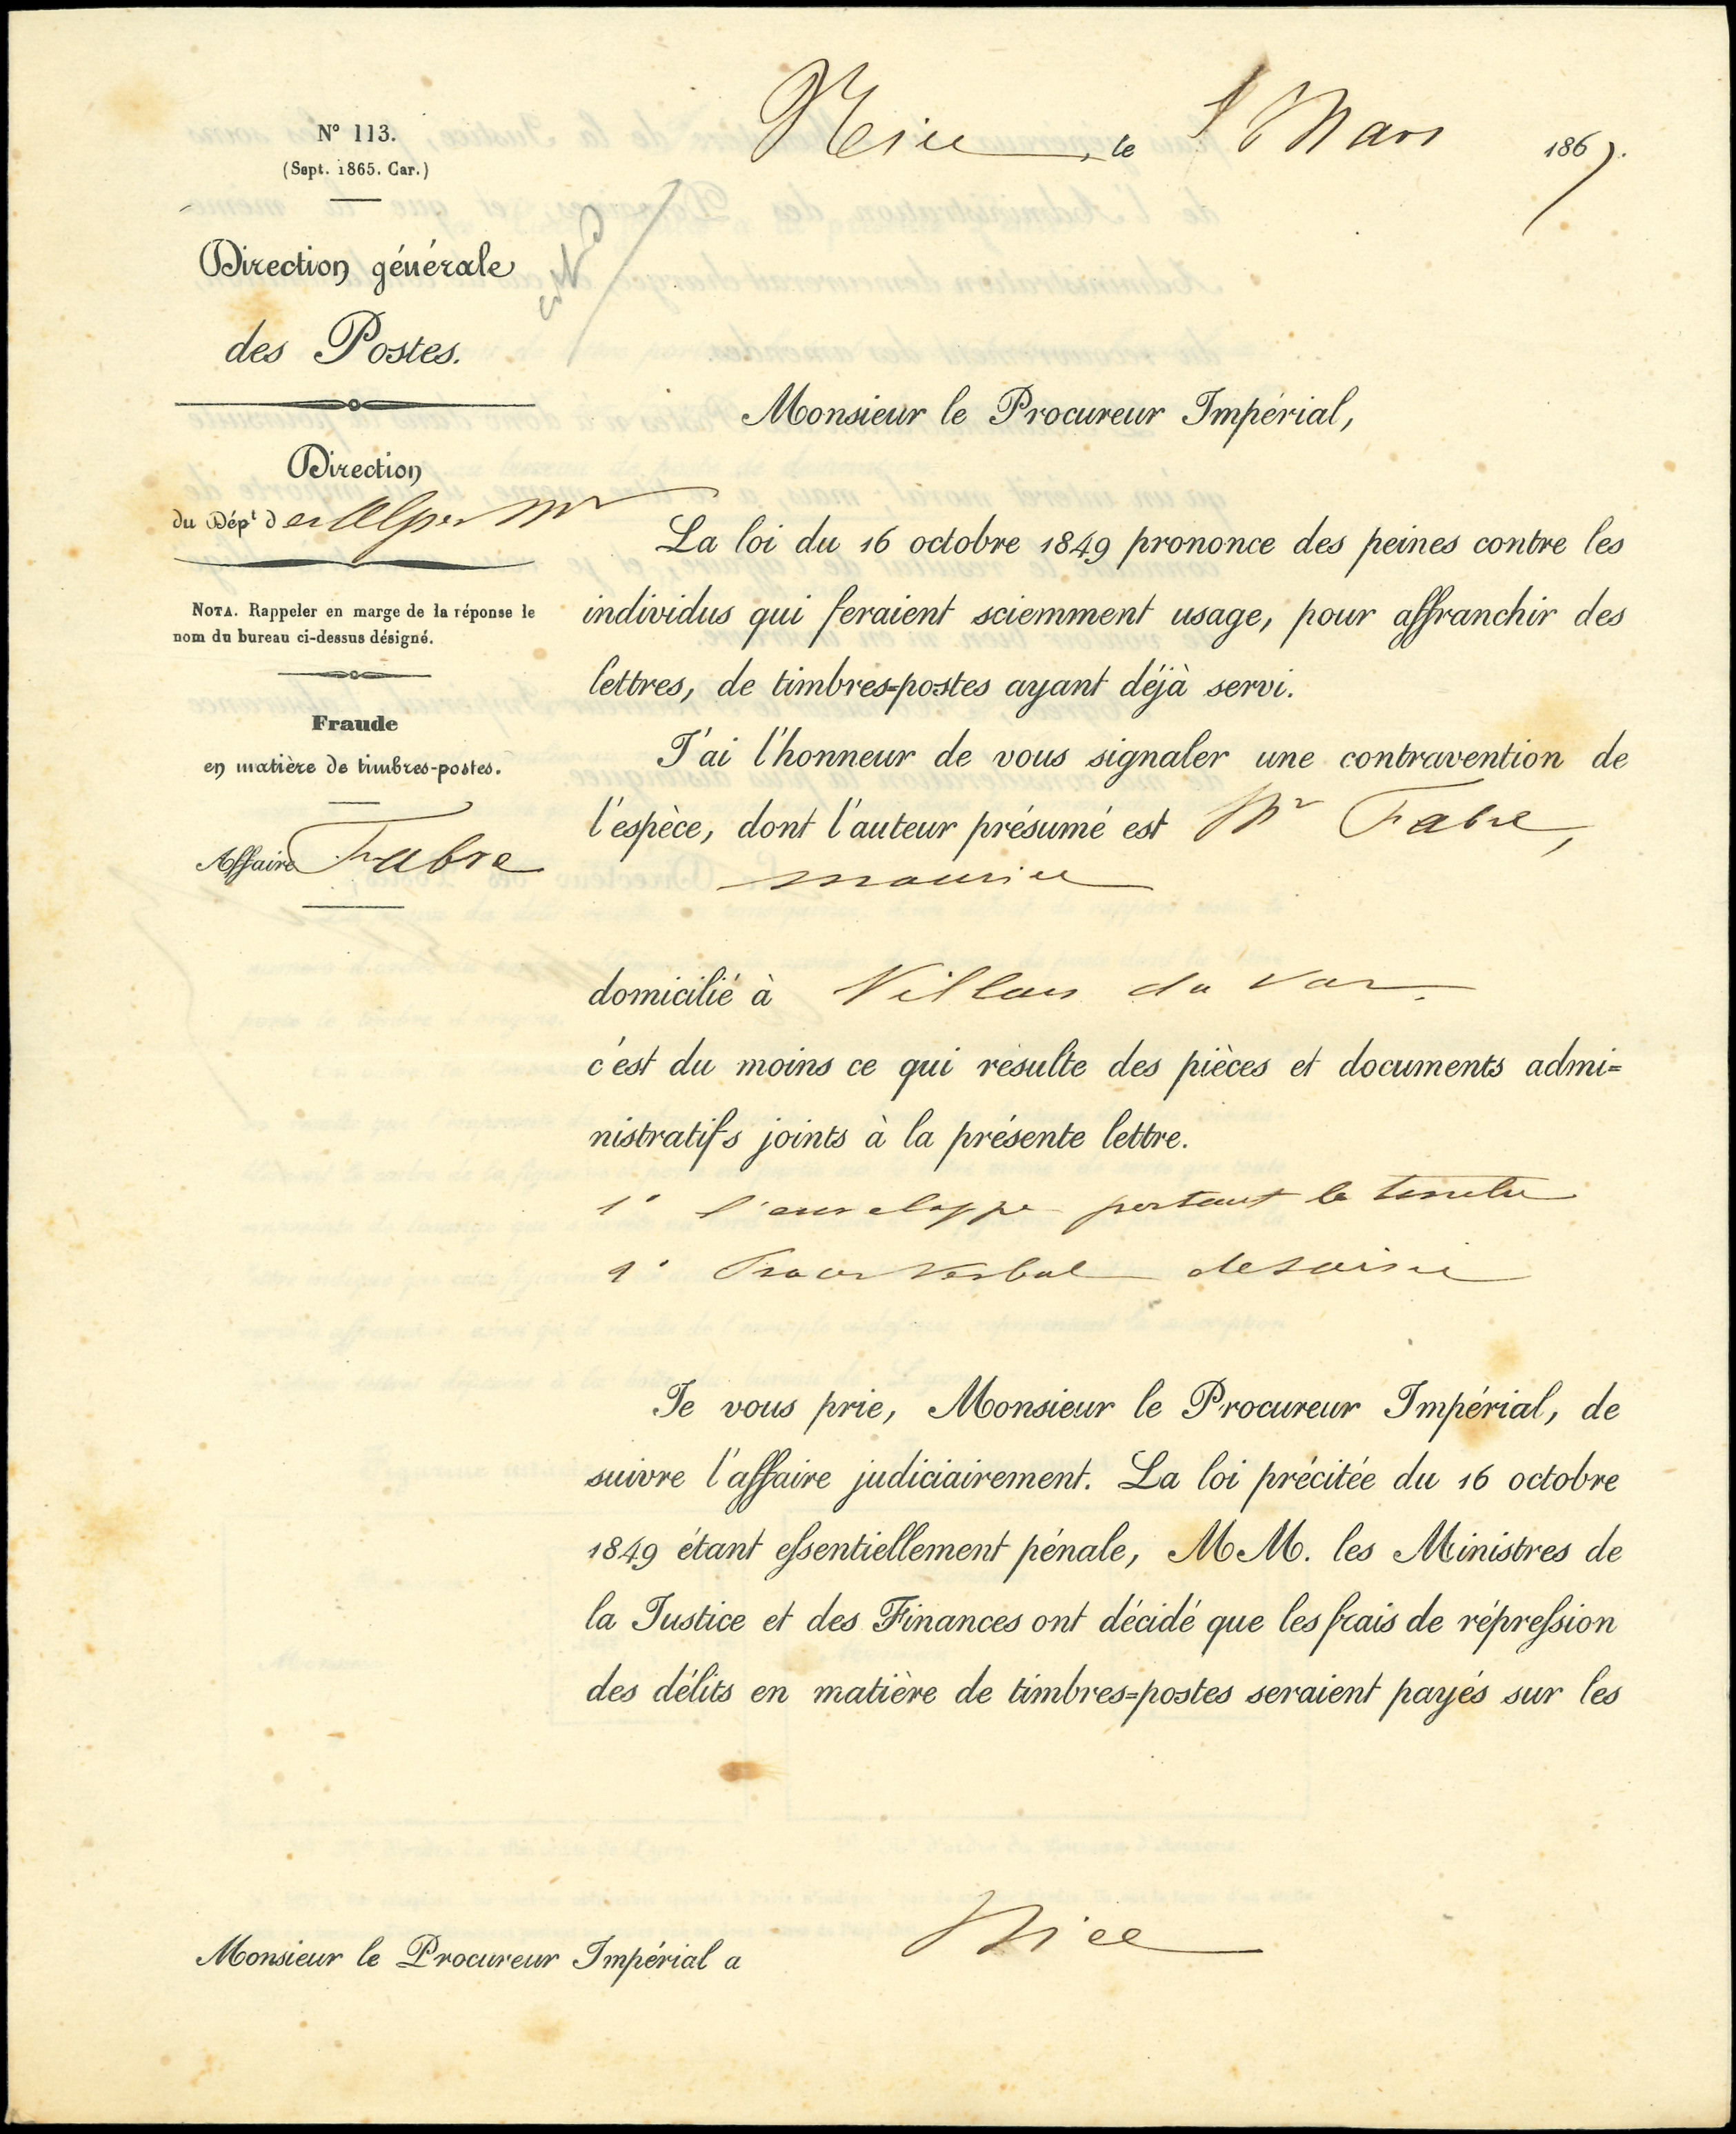 Nice, le 1 Mars 1867.
N° 113.
(Sept. 1865. Car.)
Direction générale
des Postes.
Direction
du Dépt des Alpes Mmes
NOTA. Rappeler en marge de la réponse le
nom du bureau ci-dessus désigné.
Fraude
en matière de timbres-postes.
Affaire Fabre
Monsieur le Procureur Impérial,
La loi du 16 octobre 1849 prononce des peines contre les
individus qui feraient sciemment usage, pour affranchir des
lettres, de timbres=postes ayant déjà servi.
J'ai l'honneur de vous signaler une contravention de
l'espèce, dont l'auteur présumé est Mr Fabre,
Maurice
domicilié à Villars du Var.
c'est du moins ce qui résulte des pièces et documents admi=
nistratifs joints à la présente lettre.
1° l'enveloppe portant le timbre
2° Procès Verbal de saisie
Je vous prie, Monsieur le Procureur Impérial, de
suivre l'affaire judiciairement. La loi précitée du 16 octobre
1849 étant essentiellement pénale, MM. les Ministres de
la Justice et des Finances ont décidé que les frais de répression
des délits en matière de timbres=postes seraient payés sur les
Monsieur le Procureur Impérial a Nice